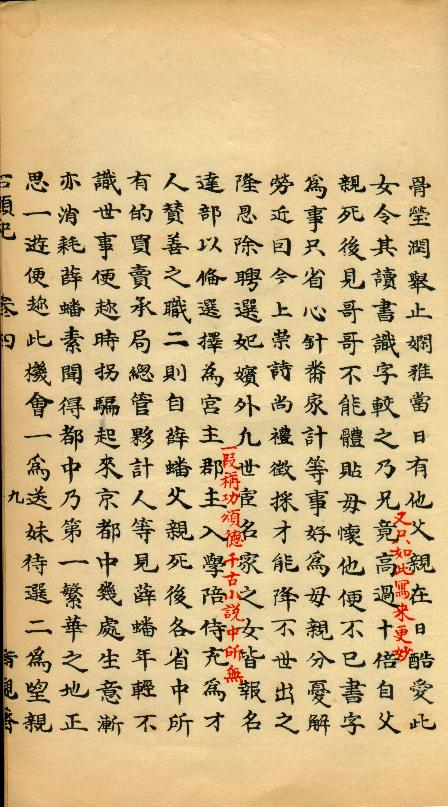 骨瑩潤舉止嫻雅當日有他父親在日酷愛此
女令其讀書識字較之乃兄竟高過十倍自父
又只如此寫來更妙
親死後見哥哥不能體貼母懷他便不已書字
為事只省心針黹家計等事好為母親分憂解
勞近曰今上崇詩尚禮徵採才能降不世出之
隆恩除聘選妃嬪外九世宦名家之女皆報名
一段稱功頌德千古小說中所無
達部以俻選擇為宮主郡主入學陪侍充為才
人贊善之職二則自薛蟠父親死後各省中所
有的買賣承局總管夥計人等見薛蟠年輕不
識世事便趂時拐騙起來京都中幾處生意漸
亦消耗薛蟠素聞得都中乃第一繁華之地正
思一遊便趂此機會一為送妹待選二為望親
石頭記 卷四 九 脂硯齋